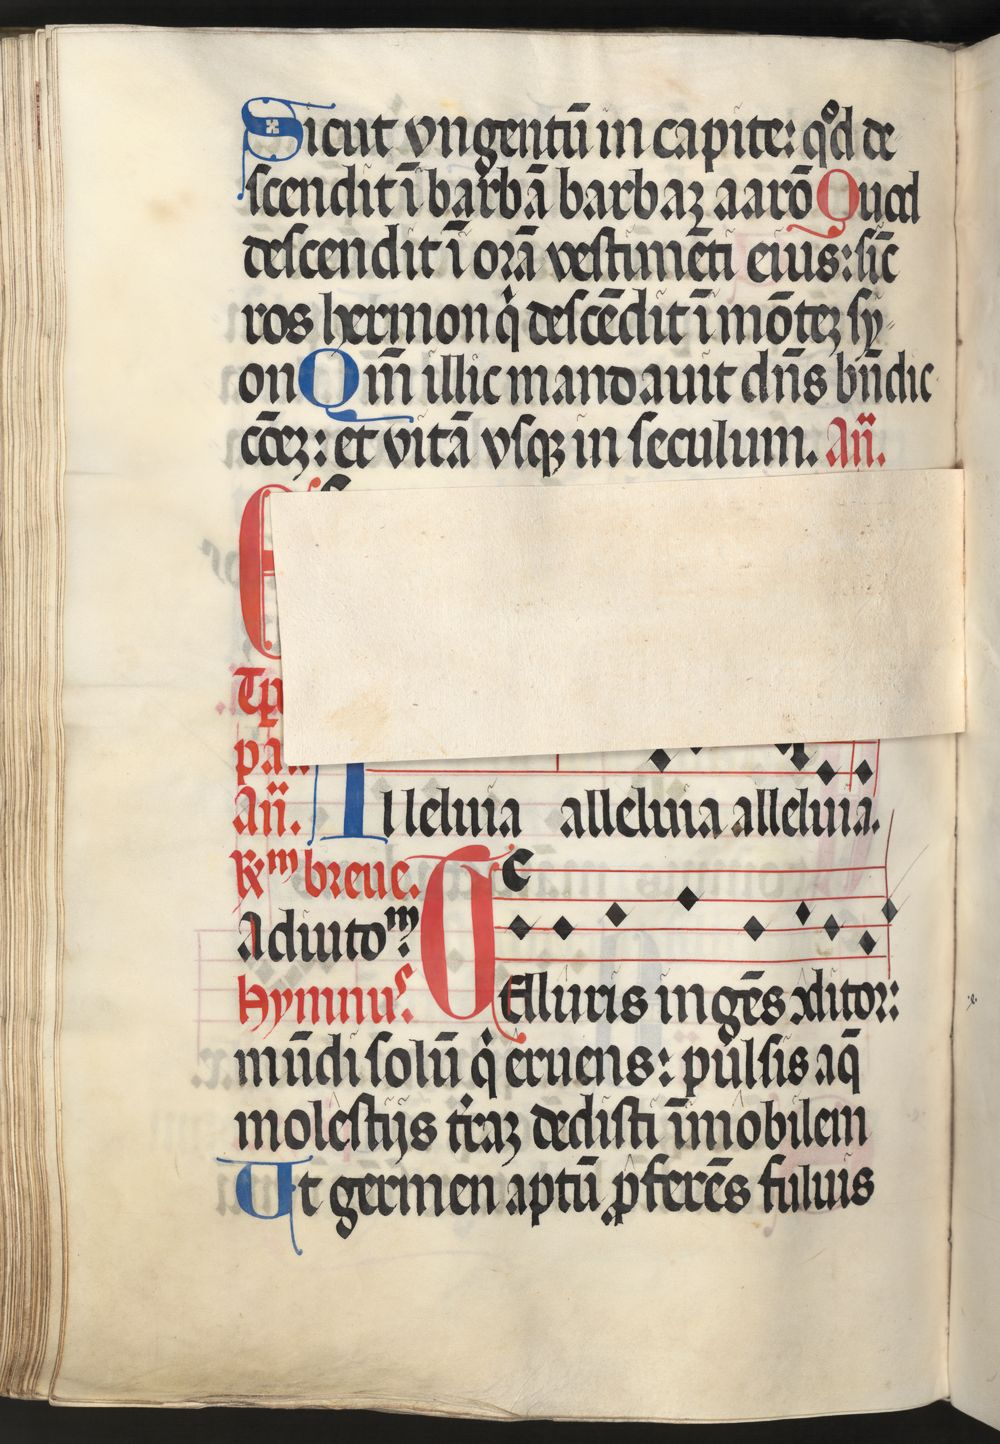 Sicut vngentū in capite: qd de
scendit ī barbā barbaꝫ aarō Quod
descendit ī orā vestimēti eius: sic̄
ros hermon q̇ descēdit ī mōteꝫ sy
on Qm̄ illic mandauit dn̄s bn̄dic
cōeꝫ: et vitā vsqꝫ in seculum. An̄.
Tp
pa
An̄. Alleluia alleluia alleluia.
R̸m breue.
Adiutom:
Hymnus. TElluris ingēs ↄditor:
mūdi solū q̇ eruens: pulsis aq̄
molestijs t̄raꝫ dedisti īmobilem
Ut germen aptū ꝓferēs fuluis